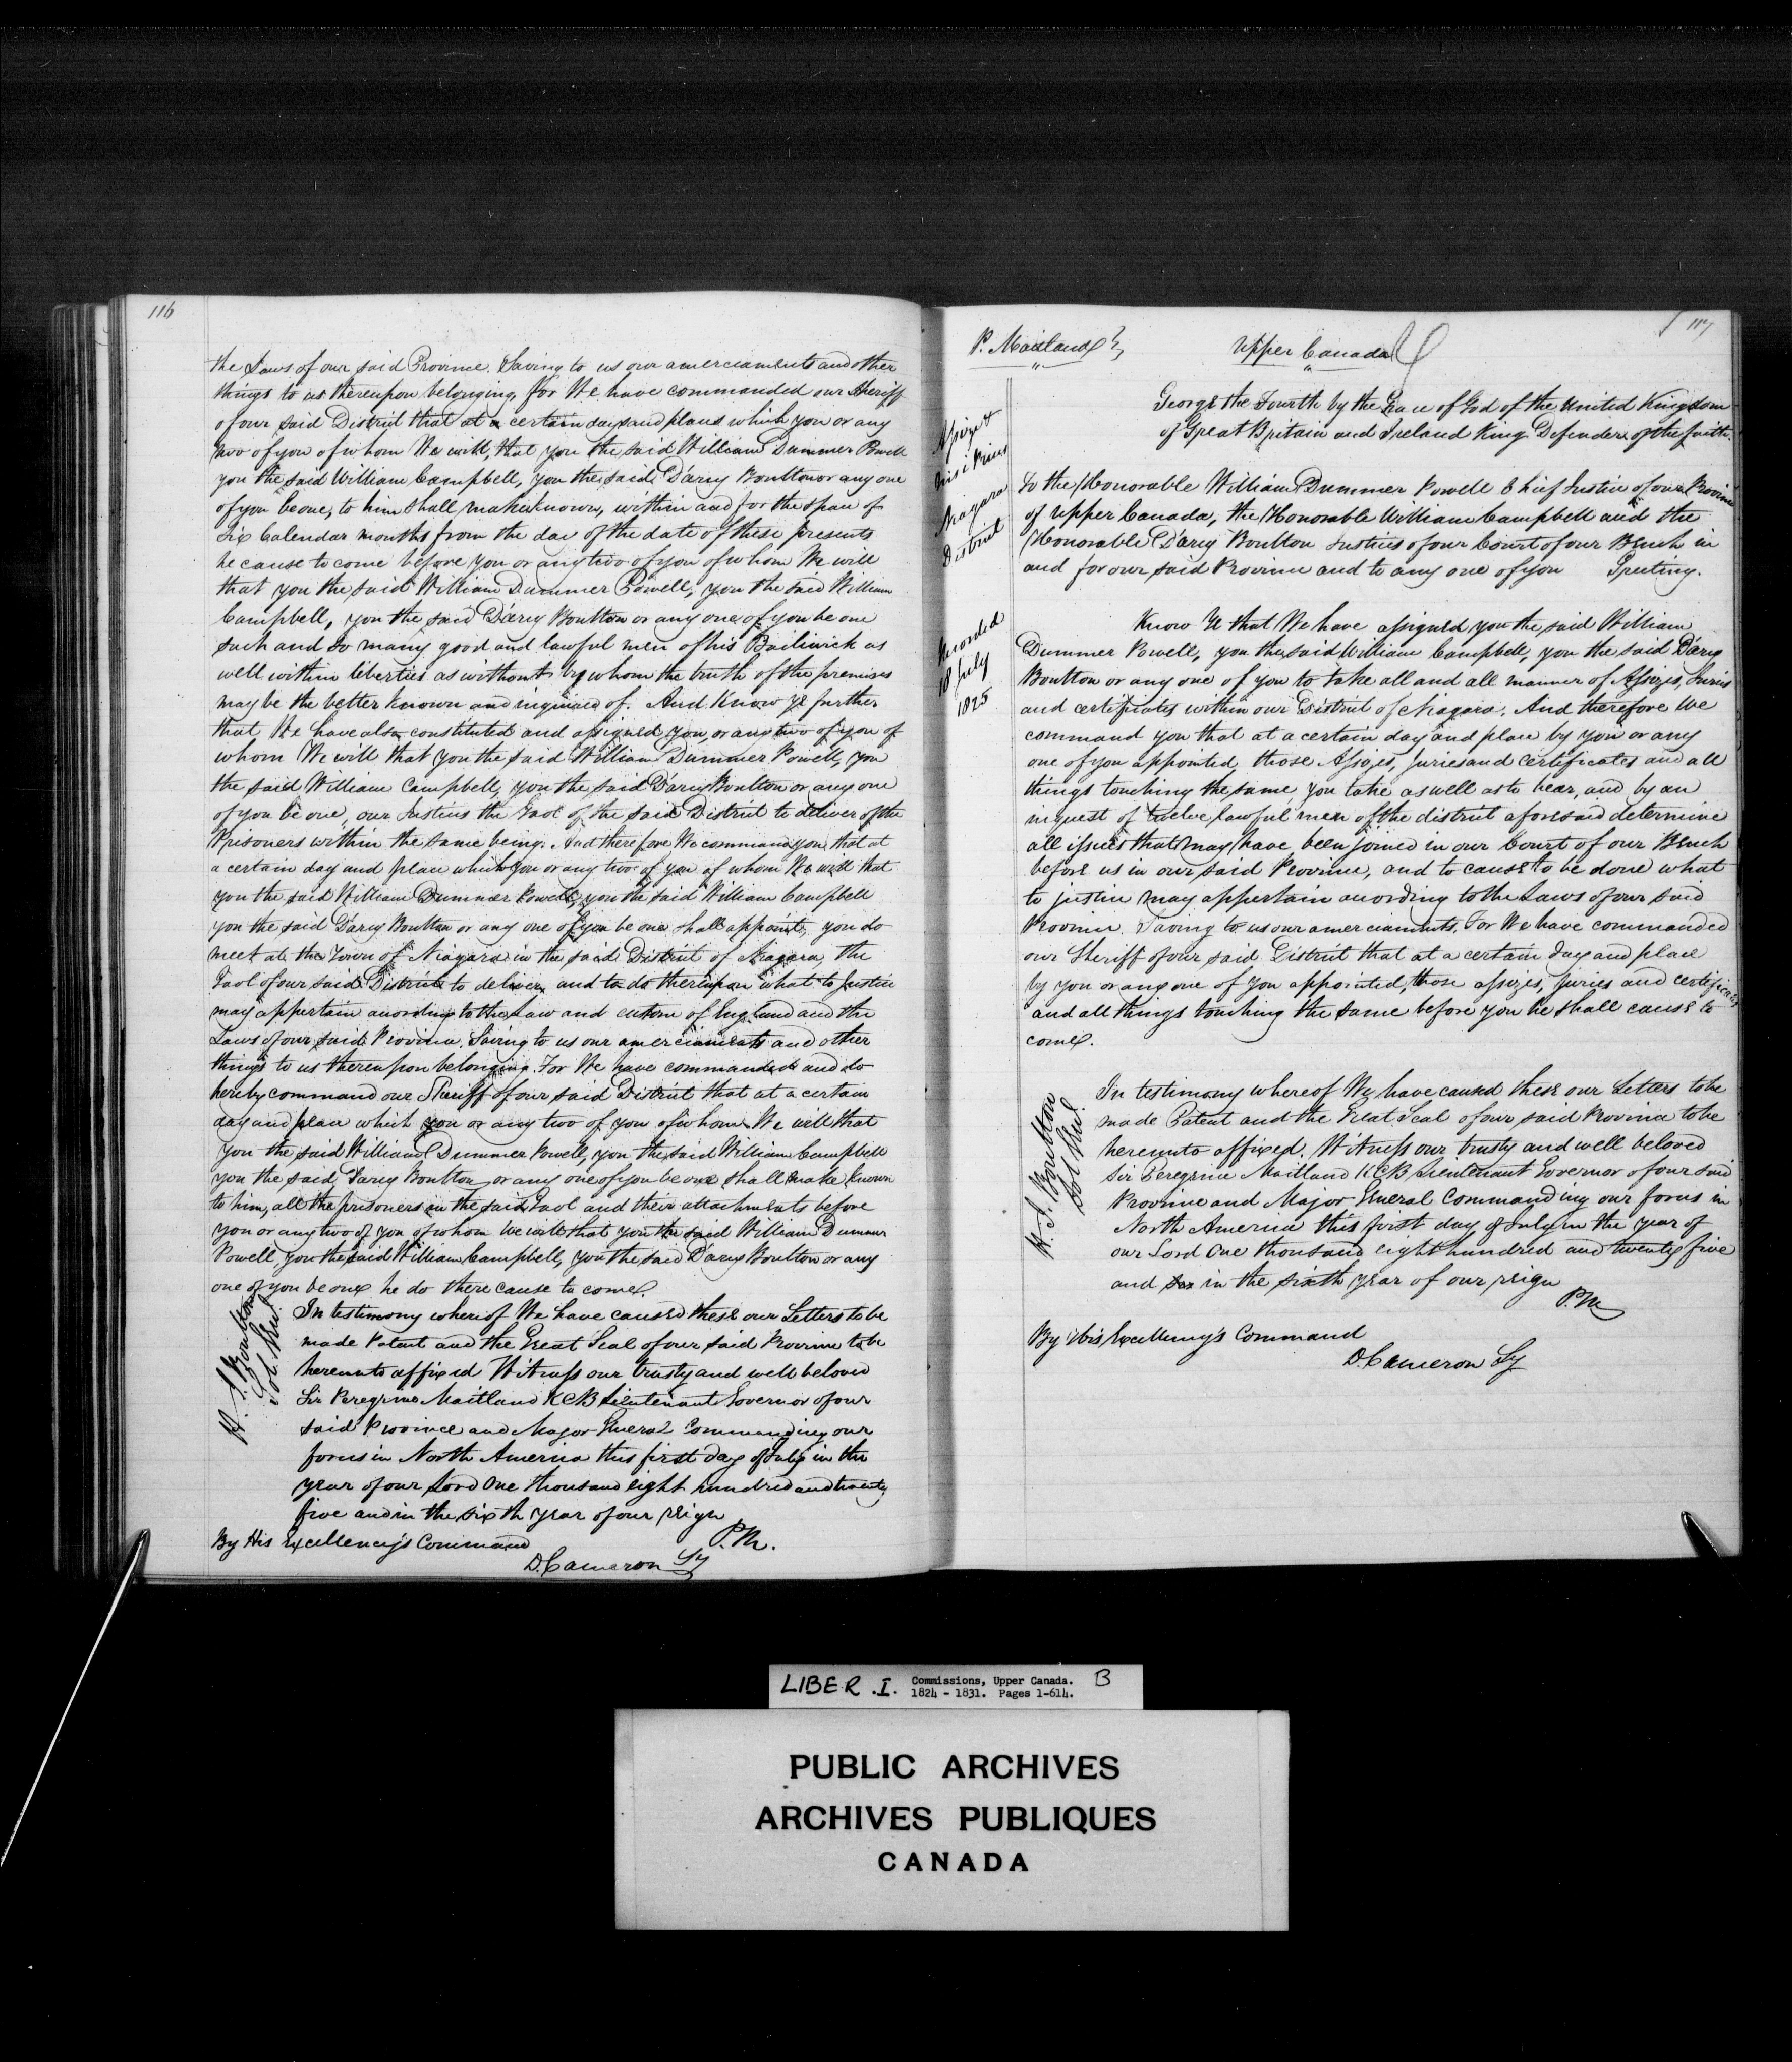 116
the Laws of our said Province. Saving to us our amerciaments and other
things to us thereupon belonging, for We have commanded our Sheriff
of our said District that at a certain day and place which you or any
two of you of whom We will, that you the said William Dummer Powell
you the said William Campbell, you the said D'arcy Boulton or any one
of you be one, to him shall make known, within and for the span of
Six Calendar months from the date of the date of these presents
he cause to come before you or any two of you of whom We will
that you the said William Dummer Powell, you the said William
Campbell, you the said D'arcy Boulton or any one of you be one
such and so many good and lawful men of his Bailiwick as
well within liberties as without by whom the truth of the premises
may be the better known and inquired of. And Know Ye further
that We have also constituted and assigned you or any two of you of
whom We will that you the said William Dummer Powell, you
the said William Campbell, you the said D'arcy Boulton or any one
of you be one, our Justices the Gaol of the said District to deliver of the
Prisoners within the same being. And therefore We command you that at
a certain day and place which you or any two of you of whom We will that
you the said William Dummer Powell, you the said William Campbell
you the said D'arcy Boulton or any one of you be one shall appoint, you do
meet at the Town of Niagara in the said District of Niagara, the
Gaol of our said District to deliver and to do thereupon what to Justice
may appertain according to the Law and custom of England and the
Laws of our said Province. Saving to us our amerciaments and other
things to us thereupon belonging. For We have commanded and do
hereby command our Sheriff of our said District that at a certain
day and place which you or any two of you of whom We will that
you the said William Dummer Powell, you the said William Campbell
you the said D'arcy Boulton or any one of you be one shall make known
to him, all the prisoners in the said Gaol and their attachments before
you or any two of you of whom We will that you the said William Dummer
Powell, you the said William Campbell, you the said D'arcy Boulton or any
one of you be one he do there cause to come.
H. J. Boulton
Sol. Genl.
In testimony whereof We have caused these our Letters to be
made Patent and the Great Seal of our said Province to be
hereunto affixed Witness our trusty and well beloved
Sir Peregrine Maitland KCB Lieutenant Governor of our
said Province and Major General Commanding our
forces in North America this first day of July in the
year of our Lord One thousand eight hundred and twenty
five and in the sixth year of our reign
P.M.
By His Excellency's Command
D. Cameron Sy
117
P. Maitland
Upper Canada
Assizes
Nisi Prius
Niagara
District
Recorded
18 July
1825
George the Fourth by the Grace of God of the United Kingdom
of Great Britain and Ireland King Defender of the faith.
To the Honorable William Dummer Powell Chief Justice of our Province
of Upper Canada, the Honorable William Campbell and the
Honorable D'arcy Boulton Justices of our Court of our Bench in
and for our said Province and to any one of you Greeting.
Know Ye that We have assigned you the said William
Dummer Powell, you the said William Campbell, you the said D'arcy
Boulton or any one of you to take all and all manner of Assizes, Juries
and certificates within our District of Niagara. And therefore We
command you that at a certain day and place by you or any
one of you appointed, those Assizes, Juries and certificates and all
things touching the same you take as well as to hear, and by an
inquest of twelve lawful men of the district aforesaid determine
all issues that may have been joined in our Court of our Bench
before us in our said Province, and to cause to be done what
to justice may appertain according to the Laws of our said
Province. Saving to us our amerciaments. For We have commanded
our Sheriff of our said District that at a certain day and place
by you or any one of you appointed, those assizes, juries and certificates
and all things touching the same before you he shall cause to
come.
H. J. Boulton
Sol. Genl.
In testimony whereof We have caused these our Letters to be
made Patent and the Great Seal of our said Province to be
hereunto affixed. Witness our trusty and well beloved
Sir Peregrine Maitland KCB Lieutenant Governor of our said
Province and Major General Commanding our forces in
North America this first day of July in the year of
our Lord One thousand eight hundred and twenty five
and in the sixth year of our reign
P.M
By His Excellency's Command
D. Cameron Sy
LIBER .I. Commissions, Upper Canada. B
1824 - 1831. Pages 1-614.
PUBLIC ARCHIVES
ARCHIVES PUBLIQUES
CANADA